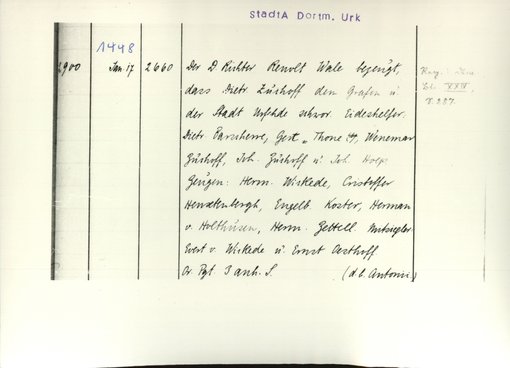 StadtA Dortm. Urk
1448
2900 Jan 17 2660 Der D. Richter Renolt Wale bezeugt,
dass Dietr. Zushoff den Grafen u
der Stadt Urfehde schwor. Eideshelfer:
Dietr. Gert Thone Wineman
Zushoff, Joh. Zushoff u Joh.
Zeugen: Herm. Wickede, Cristoffer
Henxtenbergh, Engelb. Koster, Herman
v. Holthusen, Herm.
Evert v. Wickede u. Ernst Oesthoff
Or. Pgt. 3 anh. S. (d. b. Antonii)
XXIV,